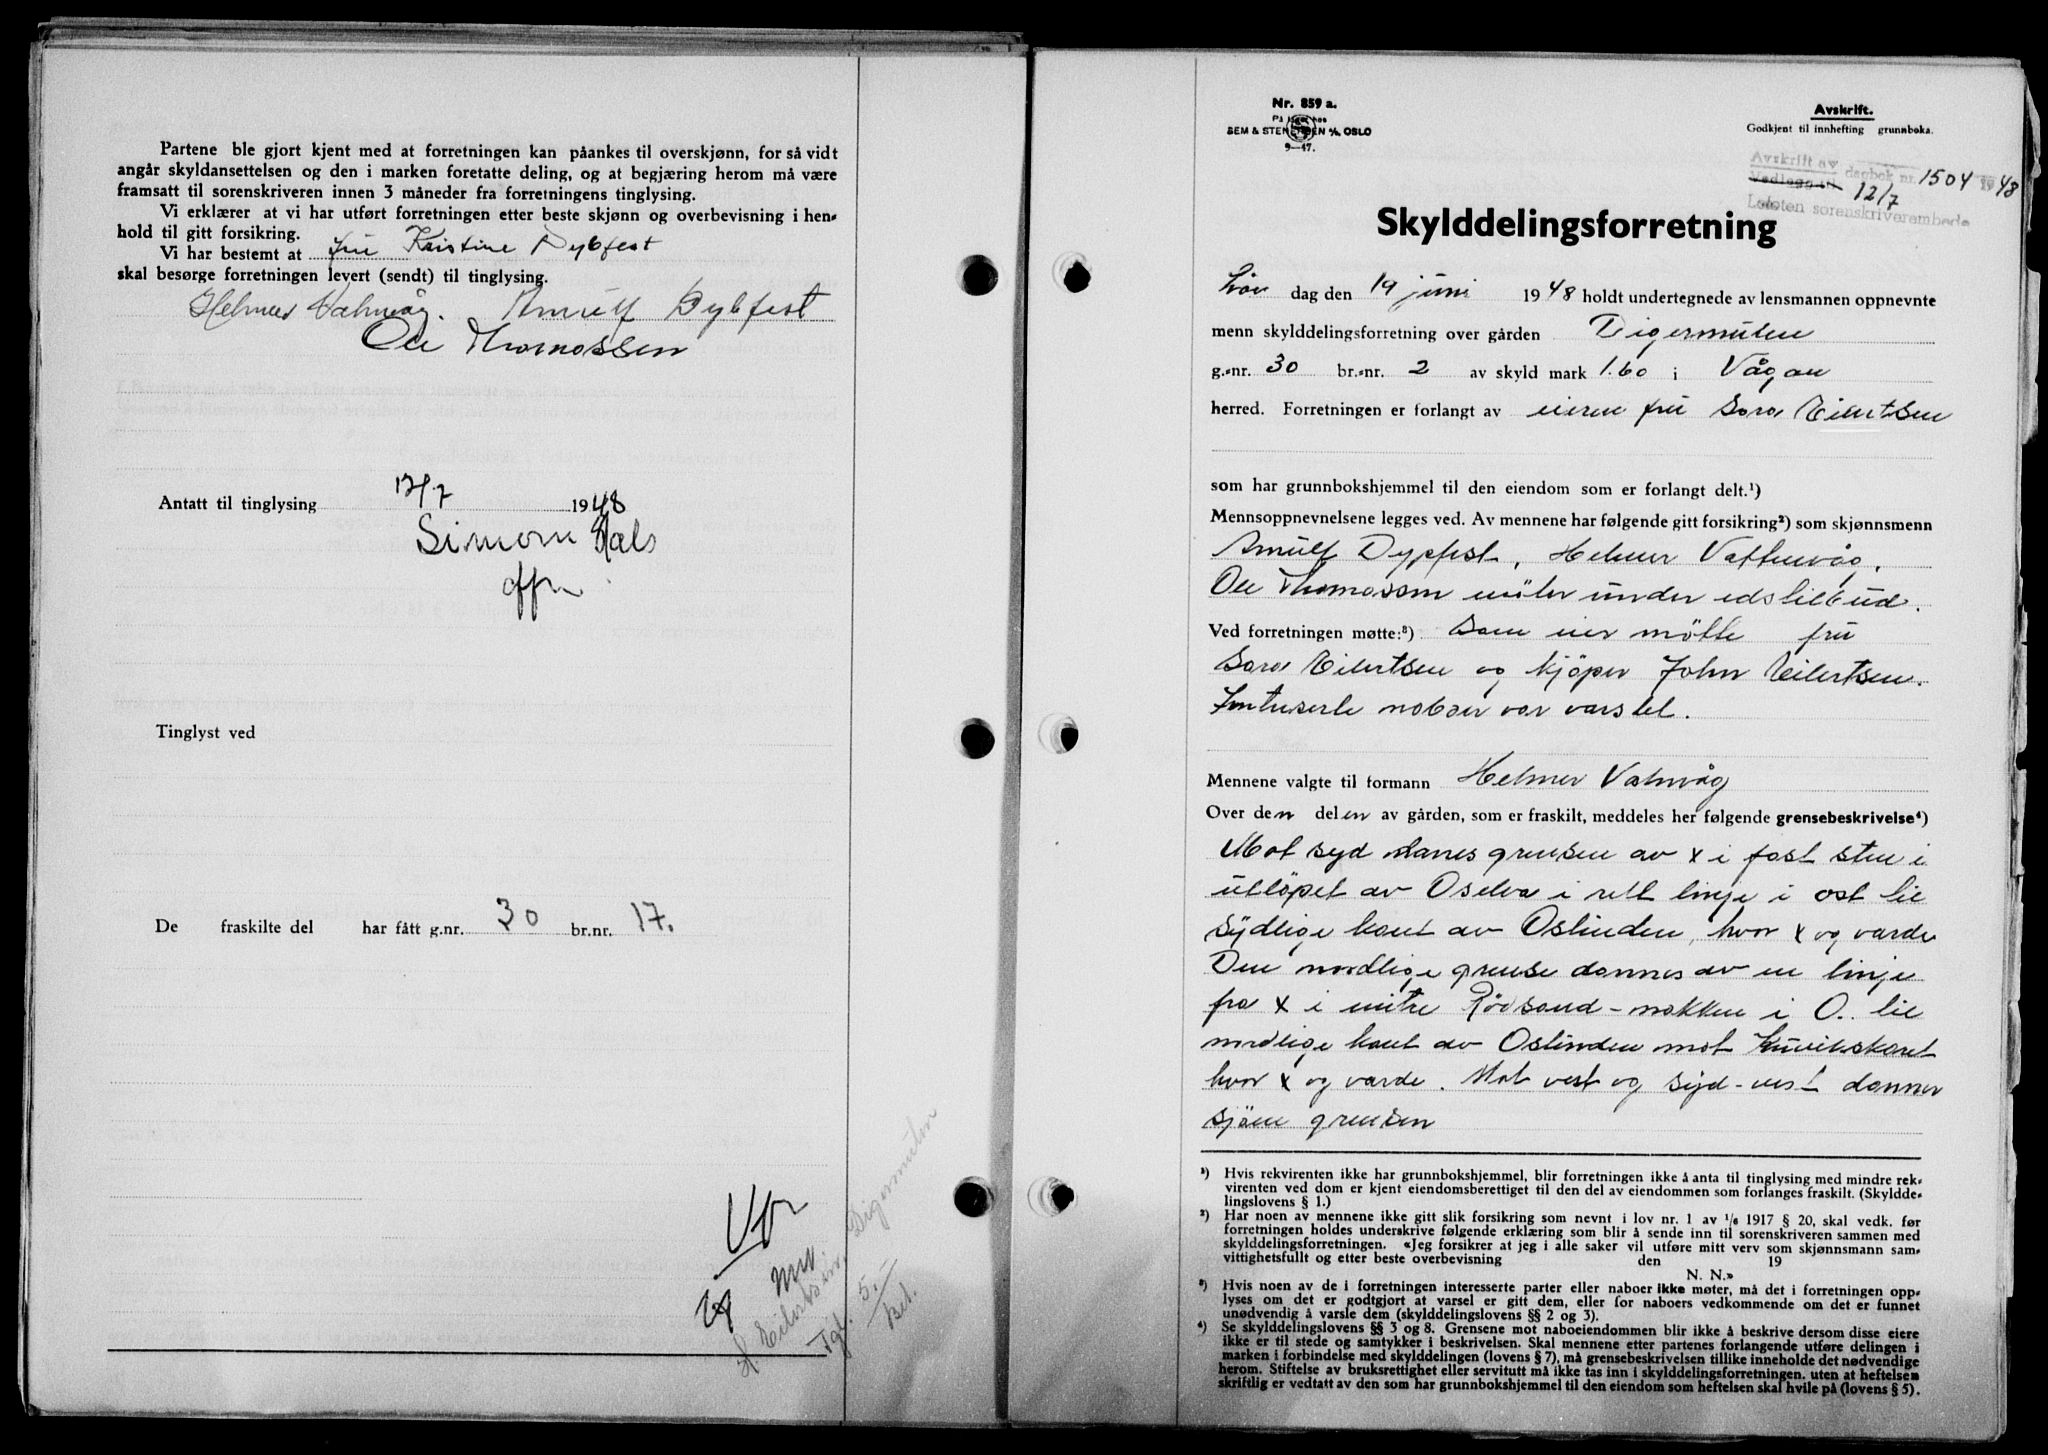 Partene ble gjort kjent med at forretningen kan påankes til overskjønn, for så vidt
angår skyldansettelsen og den i marken foretatte deling, og at begjæring herom må være
framsatt til sorenskriveren innen 3 måneder fra forretningens tinglysing.
Vi erklærer at vi har utført forretningen etter beste skjønn og overbevisning i hen-
hold til gitt forsikring.
Vi har bestemt at fru Kristine Dybfest
skal besørge forretningen levert (sendt) til tinglysing.
Helmer Valnvåg. Arnulf Dybfest
Ole Thomassen
Antatt til tinglysing 12/7 1948
Simon Hals
Tinglyst ved
De fraskilte del har fått g.nr. 30 br.nr. 17.
Digermulen
5.-
Bet.
Nr. 859 a.
På lager hos
SEM & STENERSEN A/S, OSLO
9-47.
Avskrift.
Godkjent til innhefting grunnboka.
Avskrift av
Vedlegg til dagbok nr. 1504 1948
12/7
Lofoten sorenskriverembede
Skylddelingsforretning
Lør dag den 19 juni 1948 holdt undertegnede av lensmannen oppnevnte
menn skylddelingsforretning over gården Digermulen
g.-nr. 30 br.-nr. 2 av skyld mark 1.60 i Vågan
herred. Forretningen er forlangt av eieren fru Sara Eilertsen
som har grunnbokshjemmel til den eiendom som er forlangt delt.¹)
Mennsoppnevnelsene legges ved. Av mennene har følgende gitt forsikring²) som skjønnsmenn
Arnulf Dypfest, Helmer Vattnvåg,
Ole Thomassen møter under edstilbud.
Ved forretningen møtte:³) Som eier møtte fru
Sara Eilertsen og kjøper John Eilertsen.
Intruserte naboer var varslet.
Mennene valgte til formann Helmer Valnvåg
Over den delen av gården, som er fraskilt, meddeles her følgende grensebeskrivelse⁴)
Mot syd dannes grensen av x i fast sten i
utløpet av Oselva i rett linje i ost til
sydlige kant av Oslinden, hvor x og varde
Den nordlige grense dannes av en linje
fra x i mitre Rødsand-nakken i O. til
nordlige kant av Oslinden mot
hvor x og varde. Mot vest og syd-vest danner
sjøen grensen
¹) Hvis rekvirenten ikke har grunnbokshjemmel, blir forretningen ikke å anta til tinglysing med mindre rek-
virenten ved dom er kjent eiendomsberettiget til den del av eiendommen som forlanges fraskilt. (Skyldde-
lingslovens § 1.)
²) Har noen av mennene ikke gitt slik forsikring som nevnt i lov nr. 1 av 1/6 1917 § 20, skal vedk. før
forretningen holdes underskrive følgende erklæring som blir å sende inn til sorenskriveren sammen med
skylddelingsforretningen. «Jeg forsikrer at jeg i alle saker vil utføre mitt verv som skjønnsmann sam-
vittighetsfullt og etter beste overbevisning den 19
N. N.»
³) Hvis noen av de i forretningen interesserte parter eller naboer ikke møter, må det i forretningen opp-
lyses om det er godtgjort at varsel er gitt dem, eller for naboers vedkommende om det er funnet
unødvendig å varsle dem (skylddelingslovens §§ 2 og 3).
⁴) Se skylddelingslovens §§ 3 og 8. Grensene mot naboeiendommen blir ikke å beskrive dersom disse eiere
ikke er til stede og samtykker i beskrivelsen. Skal mennene etter partenes forlangende utføre delingen i
marken i forbindelse med skylddelingen (lovens § 7), må grensebeskrivelsen tillike inneholde det nødvendige
herom. Stiftelse av bruksrettighet eller servitutt må ikke tas inn i skylddelingsforretningen. uten at heftelsen
skriftlig er vedtatt av den som har grunnbokshjemmel til den eiendom som heftelsen skal hvile på (lovens § 5).